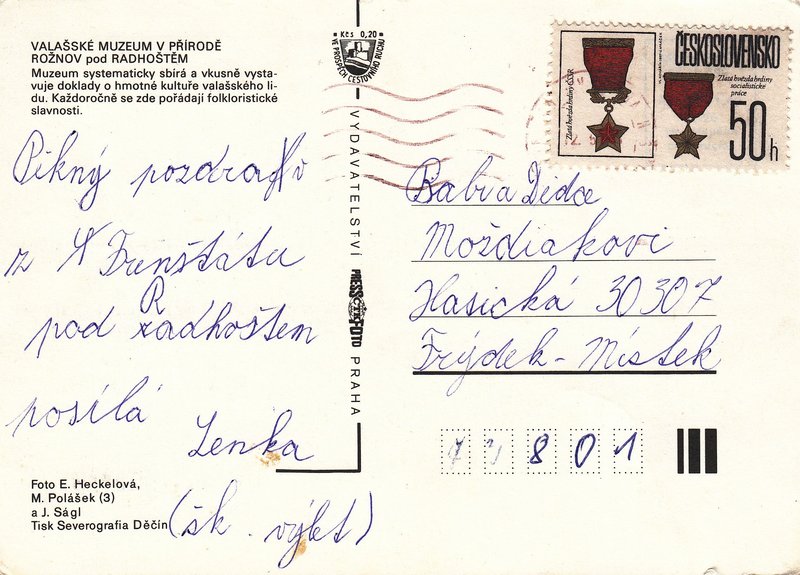 VALAŠSKÉ MUZEUM V PŘÍRODĚ
ROŽNOV pod RADHOŠTĚM
Muzeum systematicky sbírá a vkusně vysta-
vuje doklady o hmotné kultuře valašského li-
du. Každoročně se zde pořádají folkloristické
slavnosti.
Pěkný pozdrav
z Frenštátu
pod Radhoštem
posílá
Lenka
(šk. výlet)
Foto E. Heckelová,
M. Polášek (3)
a J. Ságl
Tisk Severografia Děčín
Kčs 0,20
VE PROSPĚCH CESTOVNÍHO RUCHU
VYDAVATELSTVÍ PRESSFOTO PRAHA
ČTK
ČESKOSLOVENSKO
Zlatá hvězda hrdiny ČSSR
Zlatá hvězda hrdiny
socialistické
práce
50 h
Bab a Dědce
Moždiakovi
Hasická 30307
Frýdek-Místek
73801